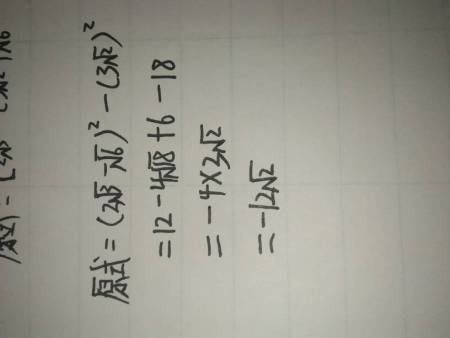 原式 = (2√3 - √6)² - (3√2)²
= 12 - 4√18 + 6 - 18
= - 4×3√2
= -12√2